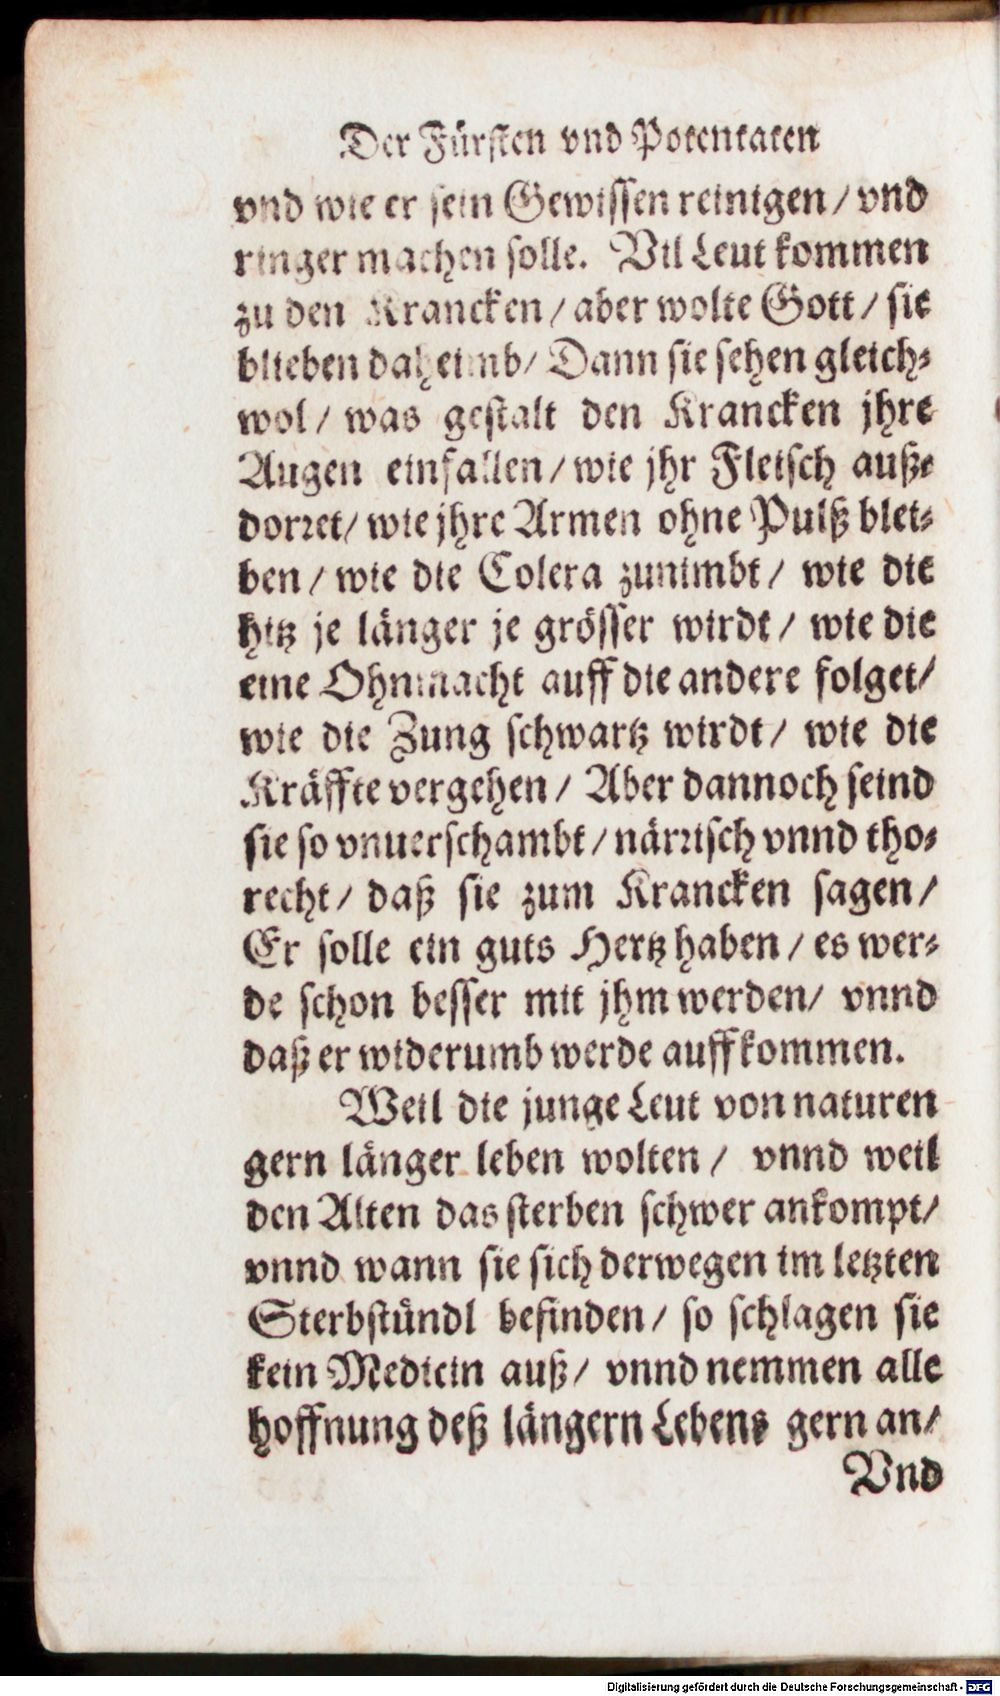 Der Fürsten vnd Potentaten
vnd wie er sein Gewissen reinigen / vnd
ringer machen solle. Vil Leut kommen
zu den Krancken / aber wolte Gott / sie
blieben daheimb / Dann sie sehen gleich-
wol / was gestalt den Krancken jhre
Augen einfallen / wie jhr Fleisch auß-
dorret / wie jhre Armen ohne Pulß blei-
ben / wie die Colera zunimbt / wie die
hitz je länger je grösser wirdt / wie die
eine Ohnmacht auff die andere folget /
wie die Zung schwartz wirdt / wie die
Kräffte vergehen / Aber dannoch seind
sie so vnuerschambt / närrisch vnnd tho-
recht / daß sie zum Krancken sagen /
Er solle ein guts Hertz haben / es wer-
de schon besser mit jhm werden / vnnd
daß er widerumb werde auffkommen.
Weil die junge Leut von naturen
gern länger leben wolten / vnnd weil
den Alten das sterben schwer ankompt /
vnnd wann sie sich derwegen im letzten
Sterbstündl befinden / so schlagen sie
kein Medicin auß / vnnd nemmen alle
hoffnung deß längern Lebens gern an /
Vnd
Digitalisierung gefördert durch die Deutsche Forschungsgemeinschaft - DFG